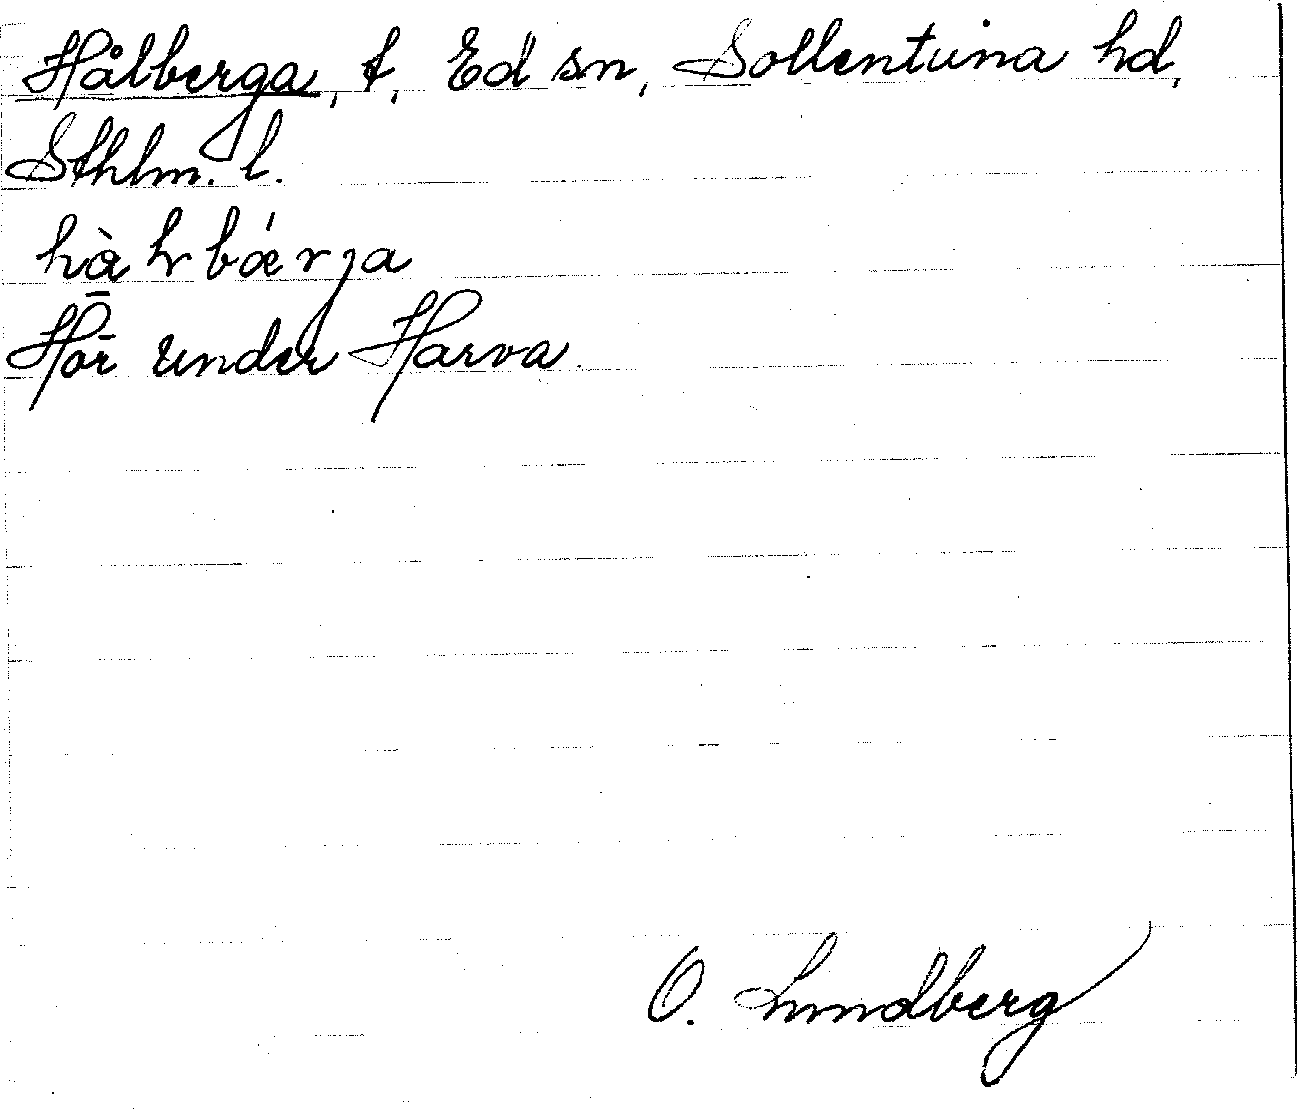 Hålberga, t, Ed sn, Sollentuna hd,
Sthlm. l.
Hör under Harva.
O. Lundberg